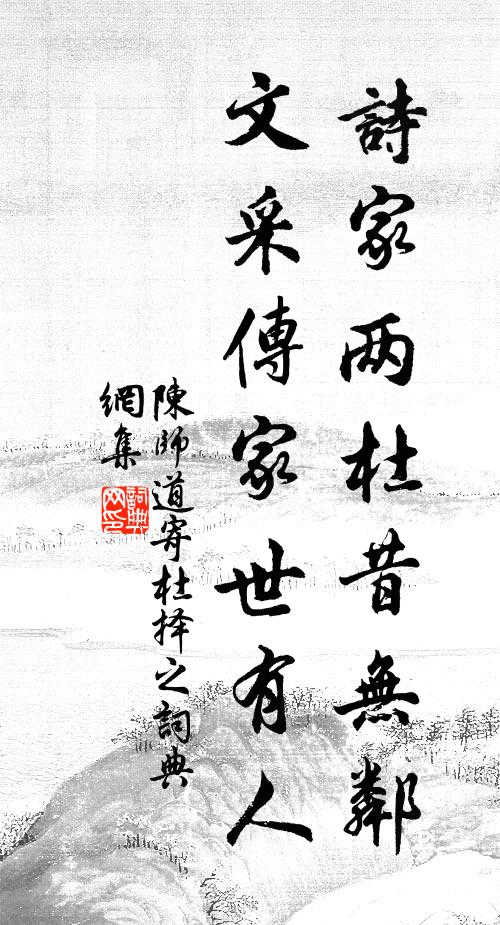 詩家两杜昔無鄰
文采傳家世有人
陳師道寄杜择之詞典
網集
詞典
网印